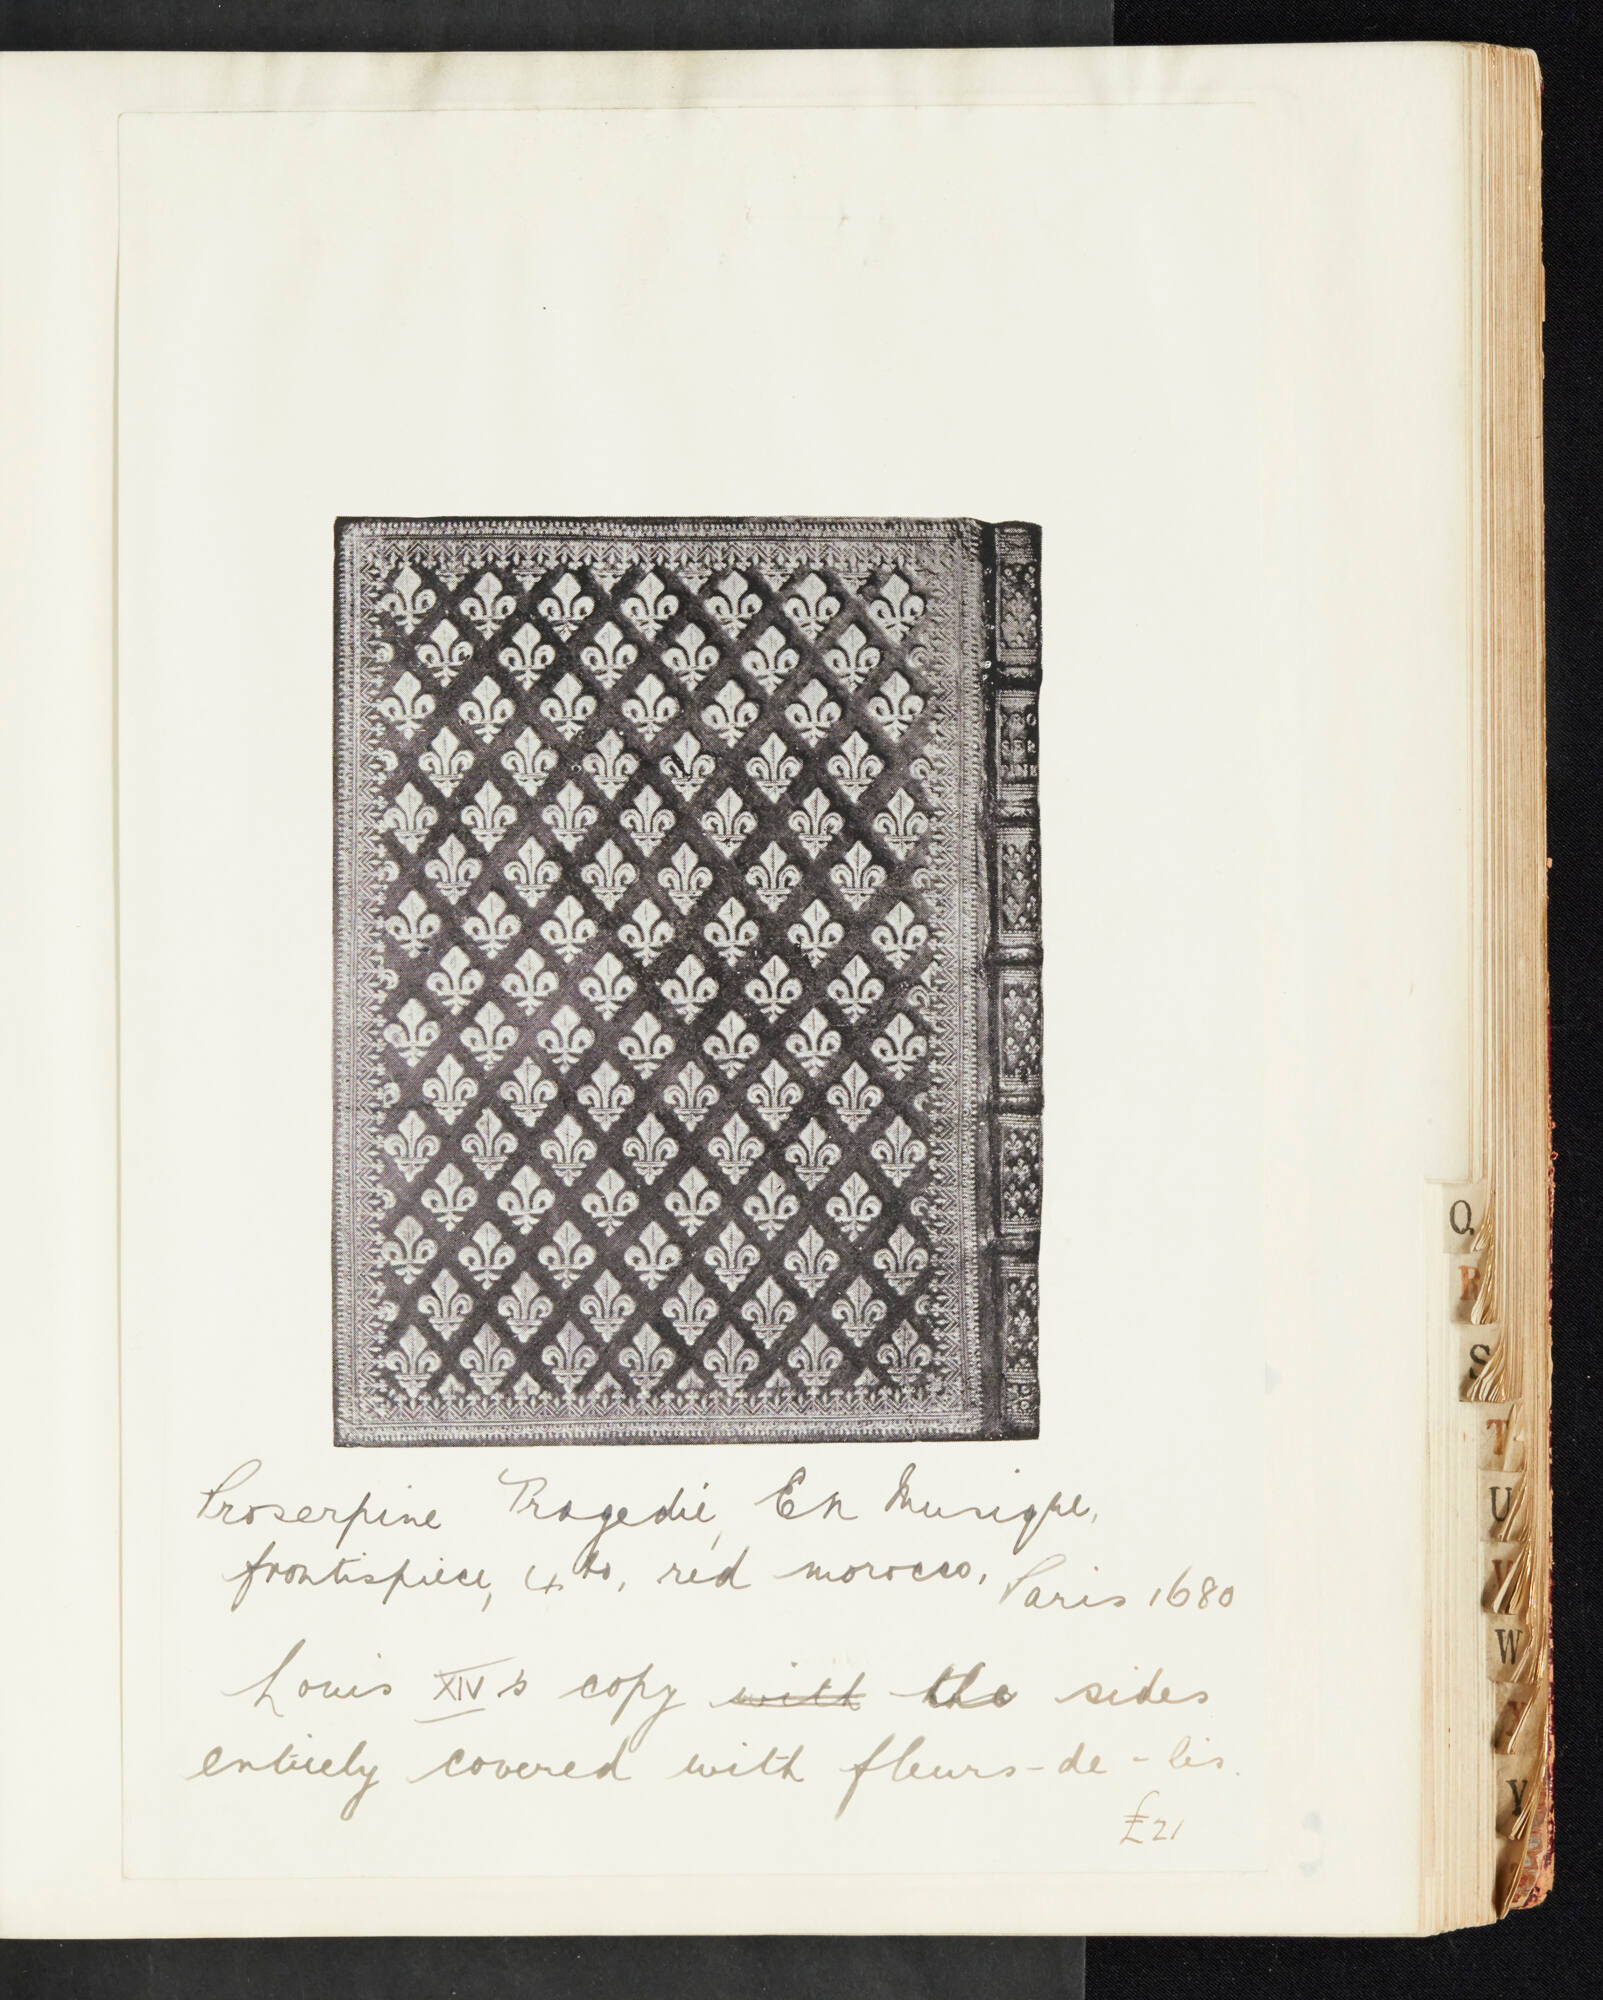 PRO
SER
PINE
Proserpine Tragedie, En Musique,
frontispiece, 4to, red morocco, Paris 1680
Louis XIV's copy with the sides
entirely covered with fleurs-de-lis.
£21
Q
R
S
T
U
V
W
X
Y